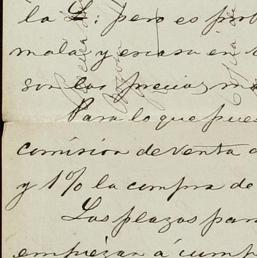 la L: pero es pro
mala y escasa en
son los precios, m
Para lo que pue
comision de venta
y 1% la compra de
Los plazos par
empiezan á cump